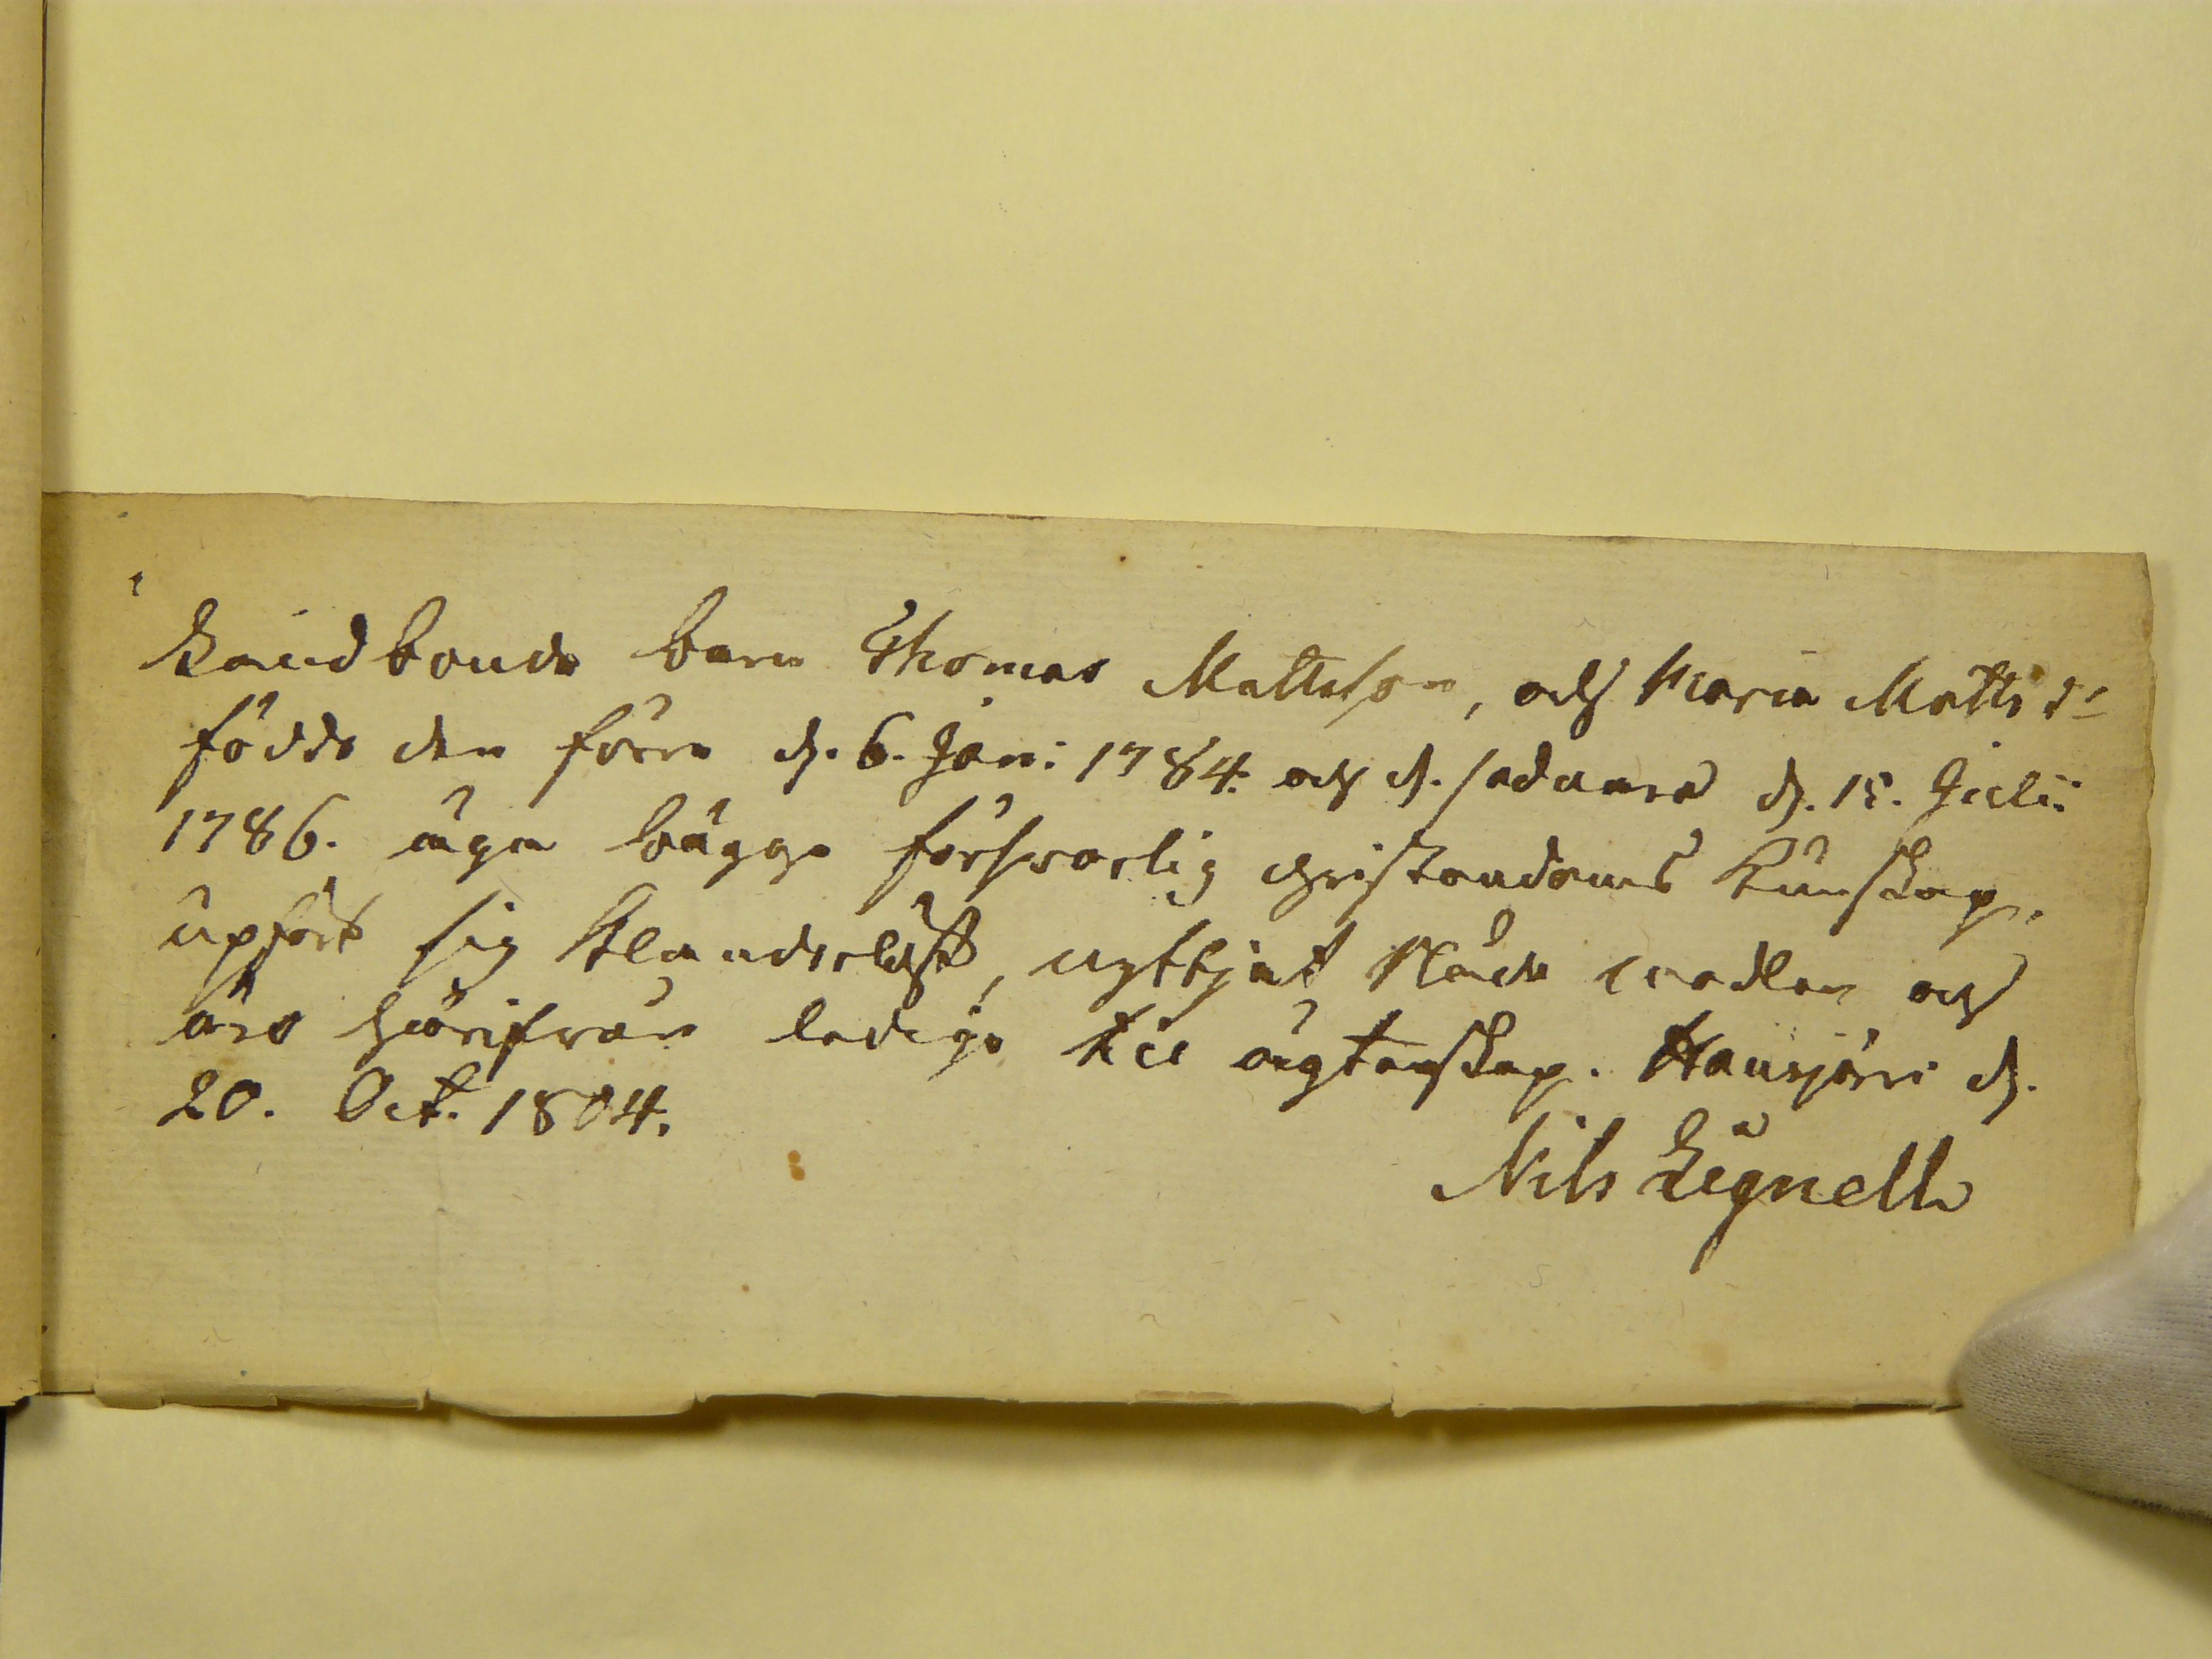 Landbonde barn Thomas Mattsson, och Maria Matts dr
födde den förra d. 6. Jan: 1784. och d. sednare d. 15. Julii
1786. äga bägge försvarlig christendoms kunskap,
upfört sig klanderlöst, nyttjat Nåde medlen och
äro härifrån ledige til ägtenskap. Hausjärvi d.
20. Oct. 1804.
Nils Lignell